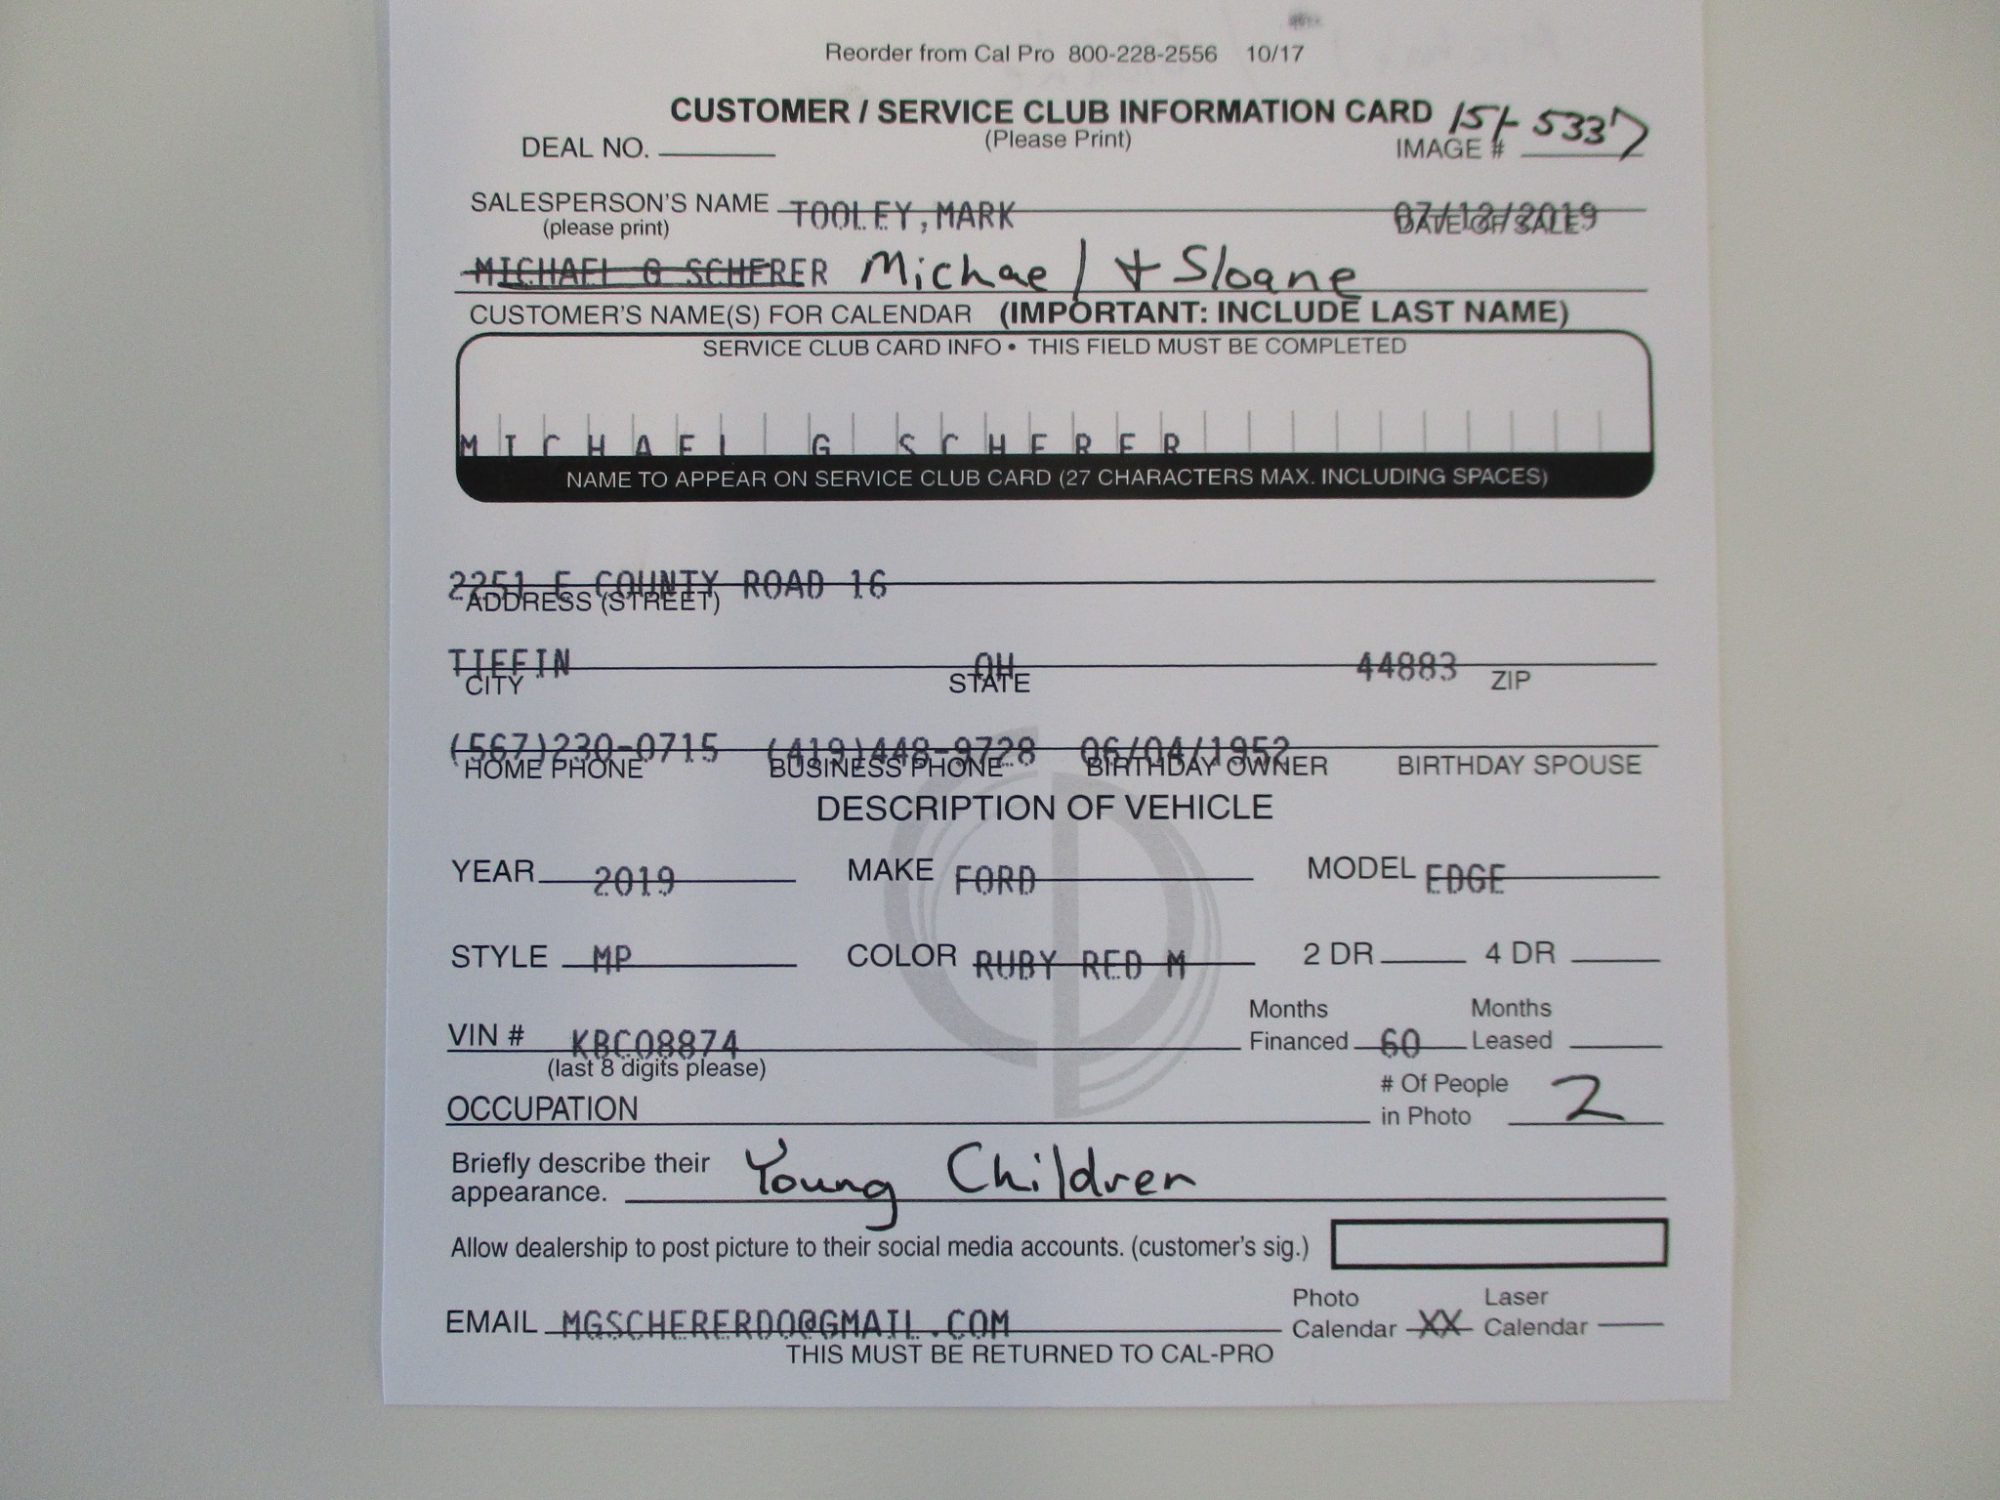 Reorder from Cal Pro 800-228-2556 10/17
CUSTOMER / SERVICE CLUB INFORMATION CARD 151-5337
DEAL NO. (Please Print) IMAGE #
SALESPERSON'S NAME TOOLEY,MARK 07/13/2019
(please print) DATE OF SALE
MICHAEL G SCHERER Michael + Sloane
CUSTOMER'S NAME(S) FOR CALENDAR (IMPORTANT: INCLUDE LAST NAME)
SERVICE CLUB CARD INFO • THIS FIELD MUST BE COMPLETED
MICHAEL G SCHERER
NAME TO APPEAR ON SERVICE CLUB CARD (27 CHARACTERS MAX. INCLUDING SPACES)
2251 E COUNTY ROAD 16
ADDRESS (STREET)
TIFFIN OH 44883 ZIP
CITY STATE
(567)230-0715 (419)448-9728 06/04/1952
HOME PHONE BUSINESS PHONE BIRTHDAY OWNER BIRTHDAY SPOUSE
DESCRIPTION OF VEHICLE
YEAR 2019 MAKE FORD MODEL EDGE
STYLE MP COLOR RUBY RED M 2 DR 4 DR
Months Months
VIN # KBC08874 Financed 60 Leased
(last 8 digits please)
# Of People
OCCUPATION in Photo 2
Briefly describe their Young Children
appearance.
Allow dealership to post picture to their social media accounts. (customer's sig.)
Photo Laser
EMAIL MGSCHERERDO@GMAIL.COM Calendar XX Calendar
THIS MUST BE RETURNED TO CAL-PRO